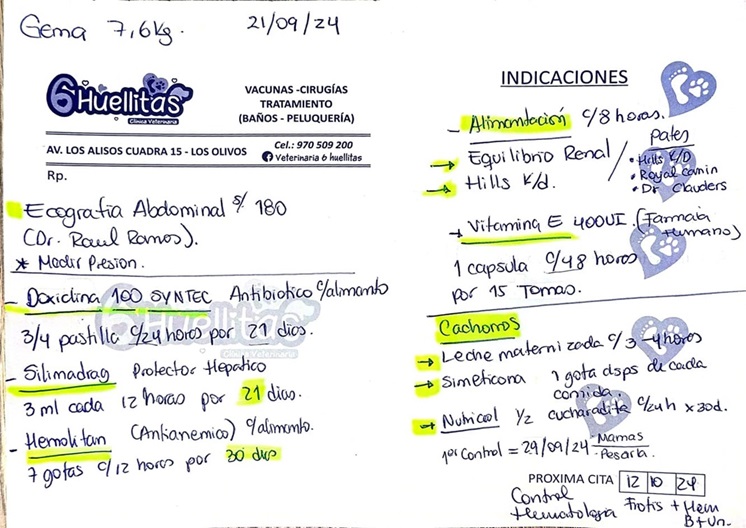 Gema 7,6kg. 21/09/24
6Huellitas
Clínica Veterinaria
VACUNAS -CIRUGÍAS
TRATAMIENTO
(BAÑOS - PELUQUERÍA)
AV. LOS ALISOS CUADRA 15 - LOS OLIVOS
Cel.: 970 509 200
Veterinaria 6 huellitas
Rp.
Ecografia Abdominal s/ 180
(Dr. Raul Ramos).
* Medir Presion.
- Doxiclina 100 SYNTEC Antibiotico c/alimento
3/4 pastilla c/24 horas por 21 dias.
- Silimadrag Protector Hepatico
3 ml cada 12 horas por 21 dias.
- Hemolitan (Antianemico) c/alimento.
7 gotas c/12 horas por 30 dias
6 Huellitas
Clínica Veterinaria
INDICACIONES
- Alimentación c/8 horas.
→ Equilibrio Renal /
→ Hills K/d.
Pates
• Hills K/D
• Royal canin
• Dr Clauders
→ Vitamina E 400UI. (Farmacia Humano)
1 capsula c/48 horas
por 15 Tomas.
Cachorros
→ Leche maternizada c/3-4 horas
→ Simeticona 1 gota dsps de cada
comida.
→ Nutricol 1/2 cucharadita c/24h x 30d.
1er Control = 29/09/24 Mamas
Pesarla.
PROXIMA CITA 12 10 24
Control
Hematologia Frotis + Hem
B+Un.